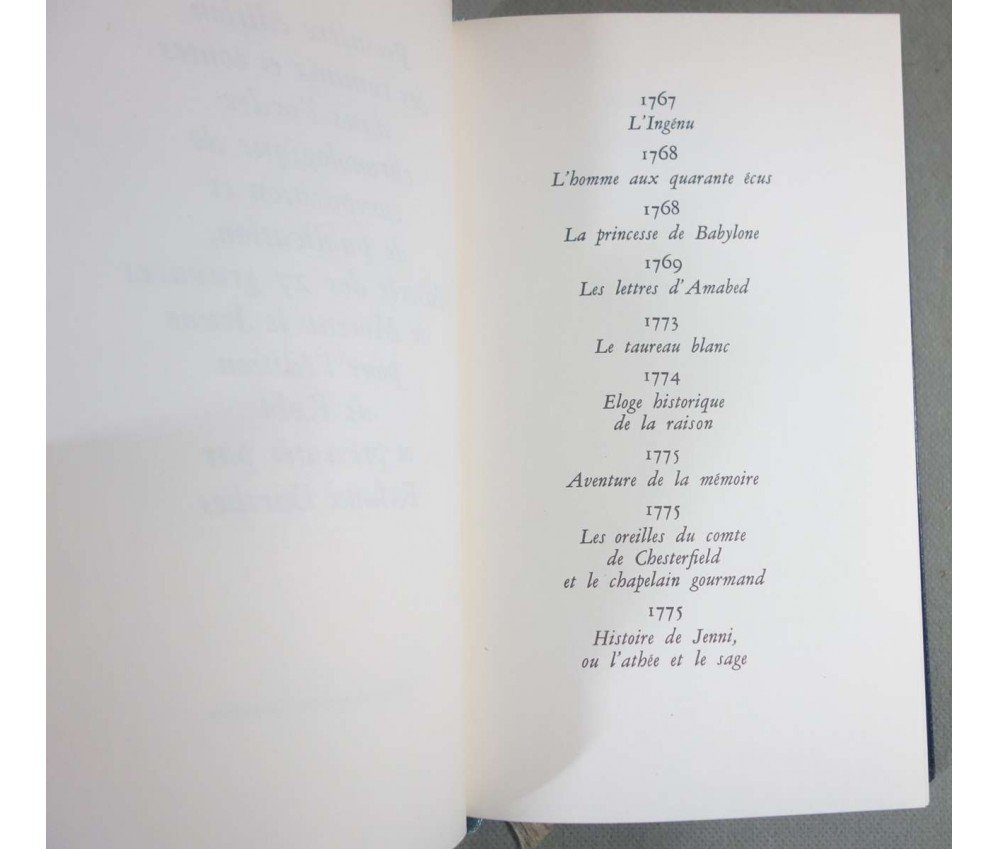 1767
L'Ingénu
1768
L'homme aux quarante écus
1768
La princesse de Babylone
1769
Les lettres d'Amabed
1773
Le taureau blanc
1774
Eloge historique
de la raison
1775
Aventure de la mémoire
1775
Les oreilles du comte
de Chesterfield
et le chapelain gourmand
1775
Histoire de Jenni,
ou l'athée et le sage